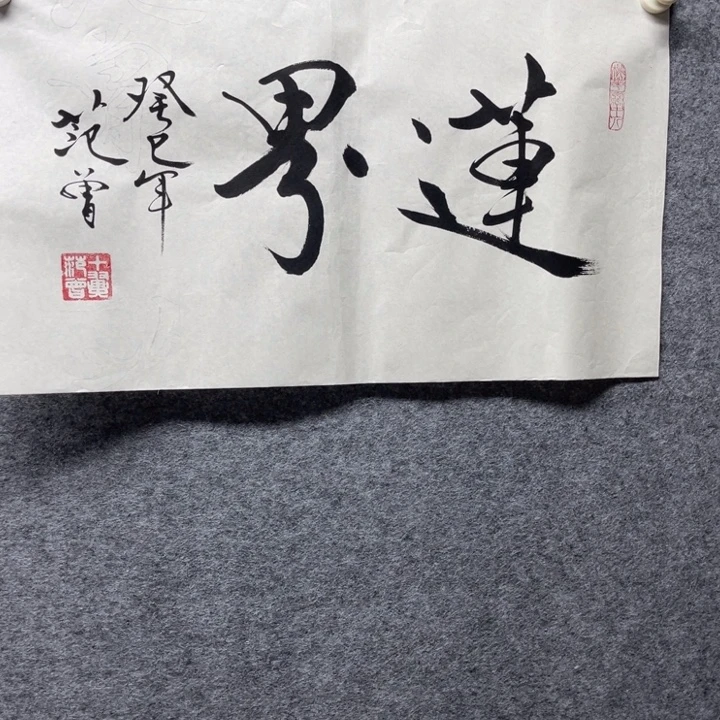 蓮界
癸巳年
范曾
十翼
范曾